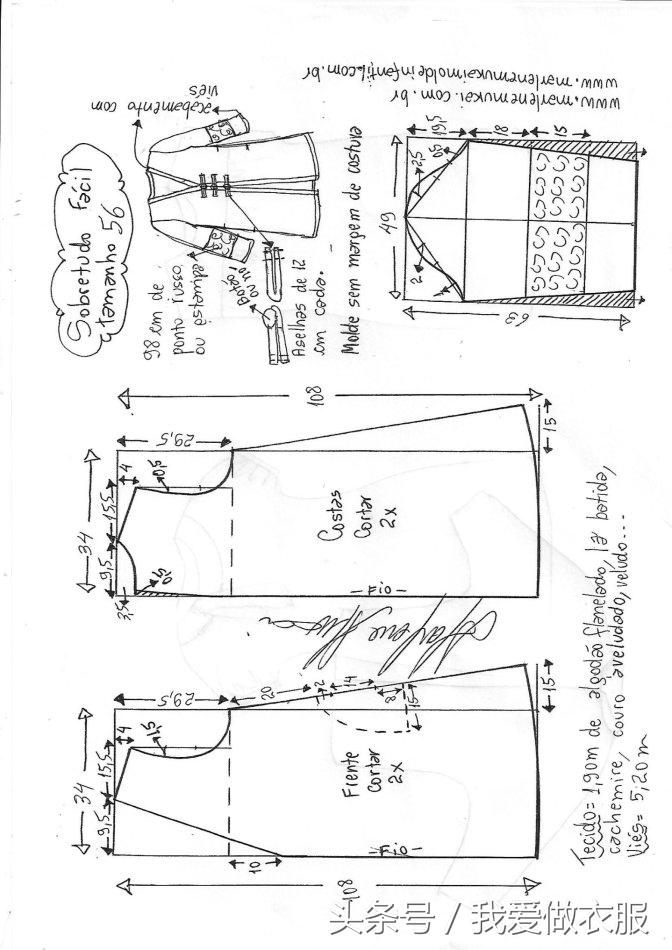 Sobretudo Fácil
tamanho 56
98 cm de
ponto russo
ou
Botão
ou nó
Aselhas de 12
cm cada.
Molde sem margem de costura
acabamento com
viés
www.marlenemukai.com.br
www.marlenemukaimoldeinfantil.com.br
49
63
19,5
18
15
2,5
0,5
2
1
108
29,5
34
15,5
9,5
4
0,5
3,5
0,5
15
Costas
Cortar
2x
Fio
108
29,5
34
15,5
9,5
4
1,5
10
20
2
14
8
15
15
Frente
Cortar
2x
Fio
Tecido = 1,90m de algodão flanelado, lã batida,
cachemire, couro aveludado, veludo...
Viés = 5,20m
头条号 / 我爱做衣服